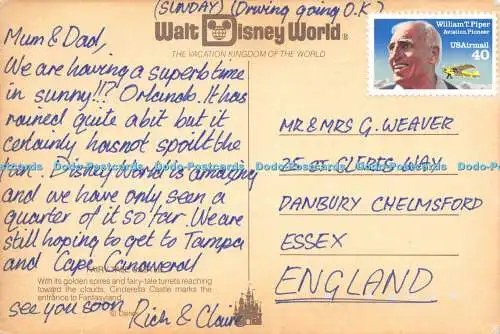 (SUNDAY) (Driving going O.K.)
Walt Disney World®
THE VACATION KINGDOM OF THE WORLD
Mum & Dad,
We are having a superb time
in sunny!!? Orlando. It has
rained quite a bit but it
certainly has not spoilt the
fun. Disney World is amazing
and we have only seen a
quarter of it so far. We are
still hoping to get to Tampa
and Cape Canaveral
FAIRY TALE
With its golden spires and fairy-tale turrets reaching
toward the clouds, Cinderella Castle marks the
entrance to Fantasyland.
© Disney
see you soon
Rich & Claire
William T. Piper
Aviation Pioneer
USAirmail
40
MR & MRS G. WEAVER
25 ST CLERES WAY
DANBURY CHELMSFORD
ESSEX
ENGLAND
Dodo-Postcards Dodo-Postcards Dodo-Postcards Dodo-Postcards Dodo-Postcards